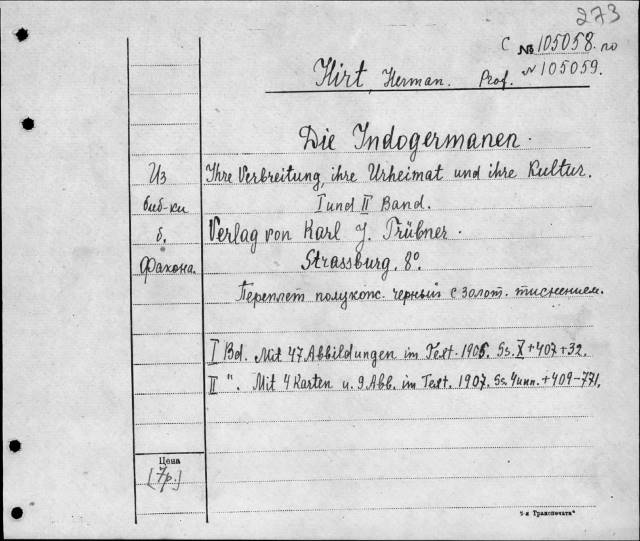 273
С № 105058. по
Hirt, Herman. Prof. № 105059.
Die Indogermanen.
Из Ihre Verbreitung, ihre Urheimat und ihre Kultur.
биб-ки I und II Band.
б. Verlag von Karl J. Trübner.
Фахона. Strassburg. 8°.
Переплет полукож. черный с золот. тиснением.
I Bd. Mit 47 Abbildungen im Text. 1905. Ss. X+407+32.
II ". Mit 4 Karten u. 9 Abb. im Text. 1907. Ss. 4 инн. +409-771.
Цена
[7р.]
"5-я Транспечать"